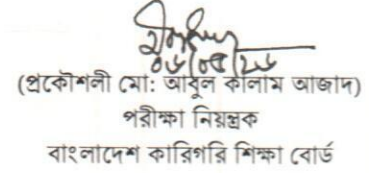 (প্রকৌশলী মো: আবুল কালাম আজাদ)
পরীক্ষা নিয়ন্ত্রক
বাংলাদেশ কারিগরি শিক্ষা বোর্ড